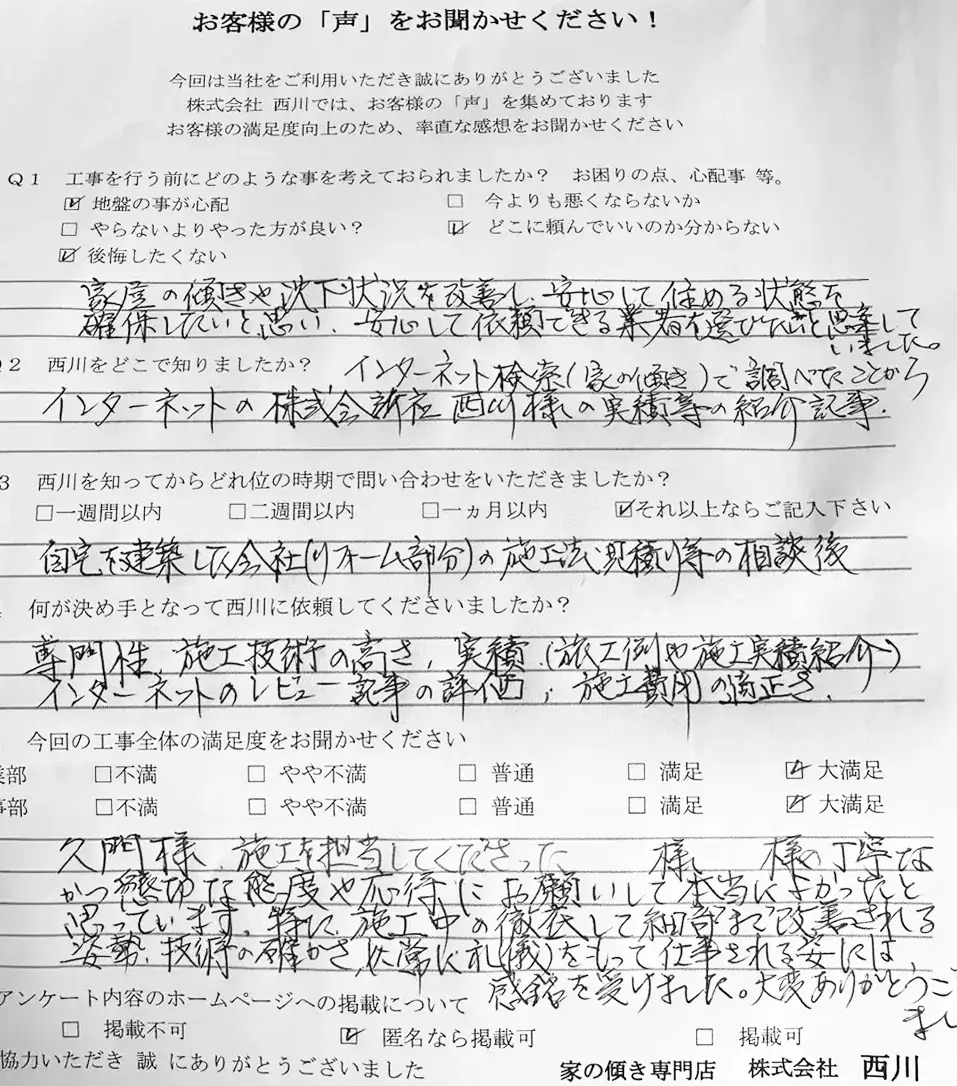 お客様の「声」をお聞かせください！
今回は当社をご利用いただき誠にありがとうございました
株式会社 西川では、お客様の「声」を集めております
お客様の満足度向上のため、率直な感想をお聞かせください
Q１ 工事を行う前にどのような事を考えておられましたか？ お困りの点、心配事 等。
☑ 地盤の事が心配 □ 今よりも悪くならないか
□ やらないよりやった方が良い？ ☑ どこに頼んでいいのか分からない
☑ 後悔したくない
家屋の傾きや沈下状況を改善し、安心して住める状態を
確保したいと思い、安心して依頼できる業者を選びたいと思案して
いました。
２ 西川をどこで知りましたか？ インターネット検索(家の傾き)で調べたことから
インターネットの株式会社西川様の実績等の紹介記事.
3 西川を知ってからどれ位の時期で問い合わせをいただきましたか？
□一週間以内 □二週間以内 □一ヵ月以内 ☑それ以上ならご記入下さい
自宅を建築した会社(リフォーム部分)の施工法、見積り等の相談後
何が決め手となって西川に依頼してくださいましたか？
専門性、施工技術の高さ，実績.(施工例や施工実績紹介)
インターネットのレビュー記事の評価，施工費用の適正さ.
今回の工事全体の満足度をお聞かせください
業部 □不満 □ やや不満 □ 普通 □ 満足 ☑ 大満足
事部 □不満 □ やや不満 □ 普通 □ 満足 ☑ 大満足
久門様、施工を担当してくださった 様、 様の丁寧な
かつ懇切な態度や応待にお願いして本当によかったと
思っています。特に、施工中の徹底して細部まで改善される
姿勢、技術の確かさ，常に礼(儀)をもって仕事される姿には、
感銘を受けました。大変ありがとうご
まし
アンケート内容のホームページへの掲載について
□ 掲載不可 ☑ 匿名なら掲載可 □ 掲載可
協力いただき 誠 にありがとうございました
家の傾き専門店 株式会社 西川